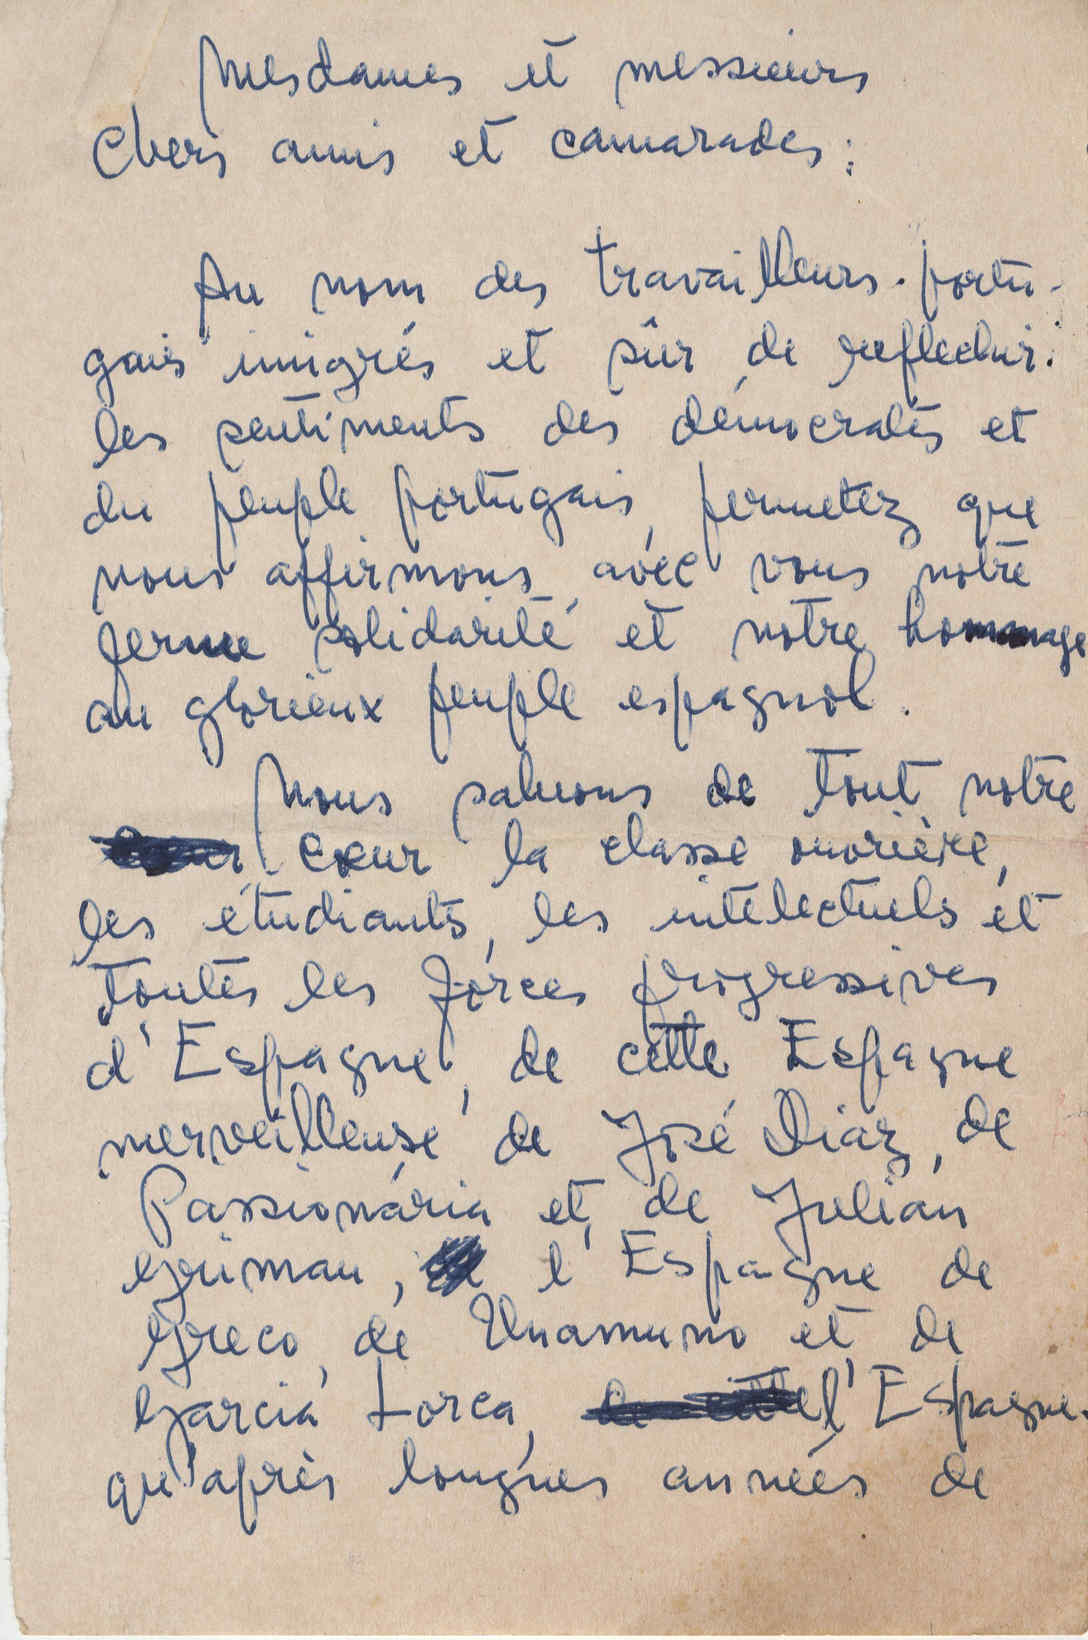 Mesdames et messieurs
Chers amis et camarades:
Au nom des travailleurs portu-
gais imigrés et sûr de reflechir
les sentiments des démocrates et
du peuple portugais, permetez que
nous affirmons, avec vous notre
ferme solidarité et notre hommage
au glorieux peuple espagnol.
Nous saluons de tout notre
cœur la classe ouvrière,
les étudiants, les intelectuels et
toutes les forces progressives
d'Espagne, de cette Espagne
merveilleuse de José Diaz, de
Passionária et de Julián
Grimau, l'Espagne de
Greco, de Unamuno et de
Garcia Lorca, l'Espagne
qu'après longues années de